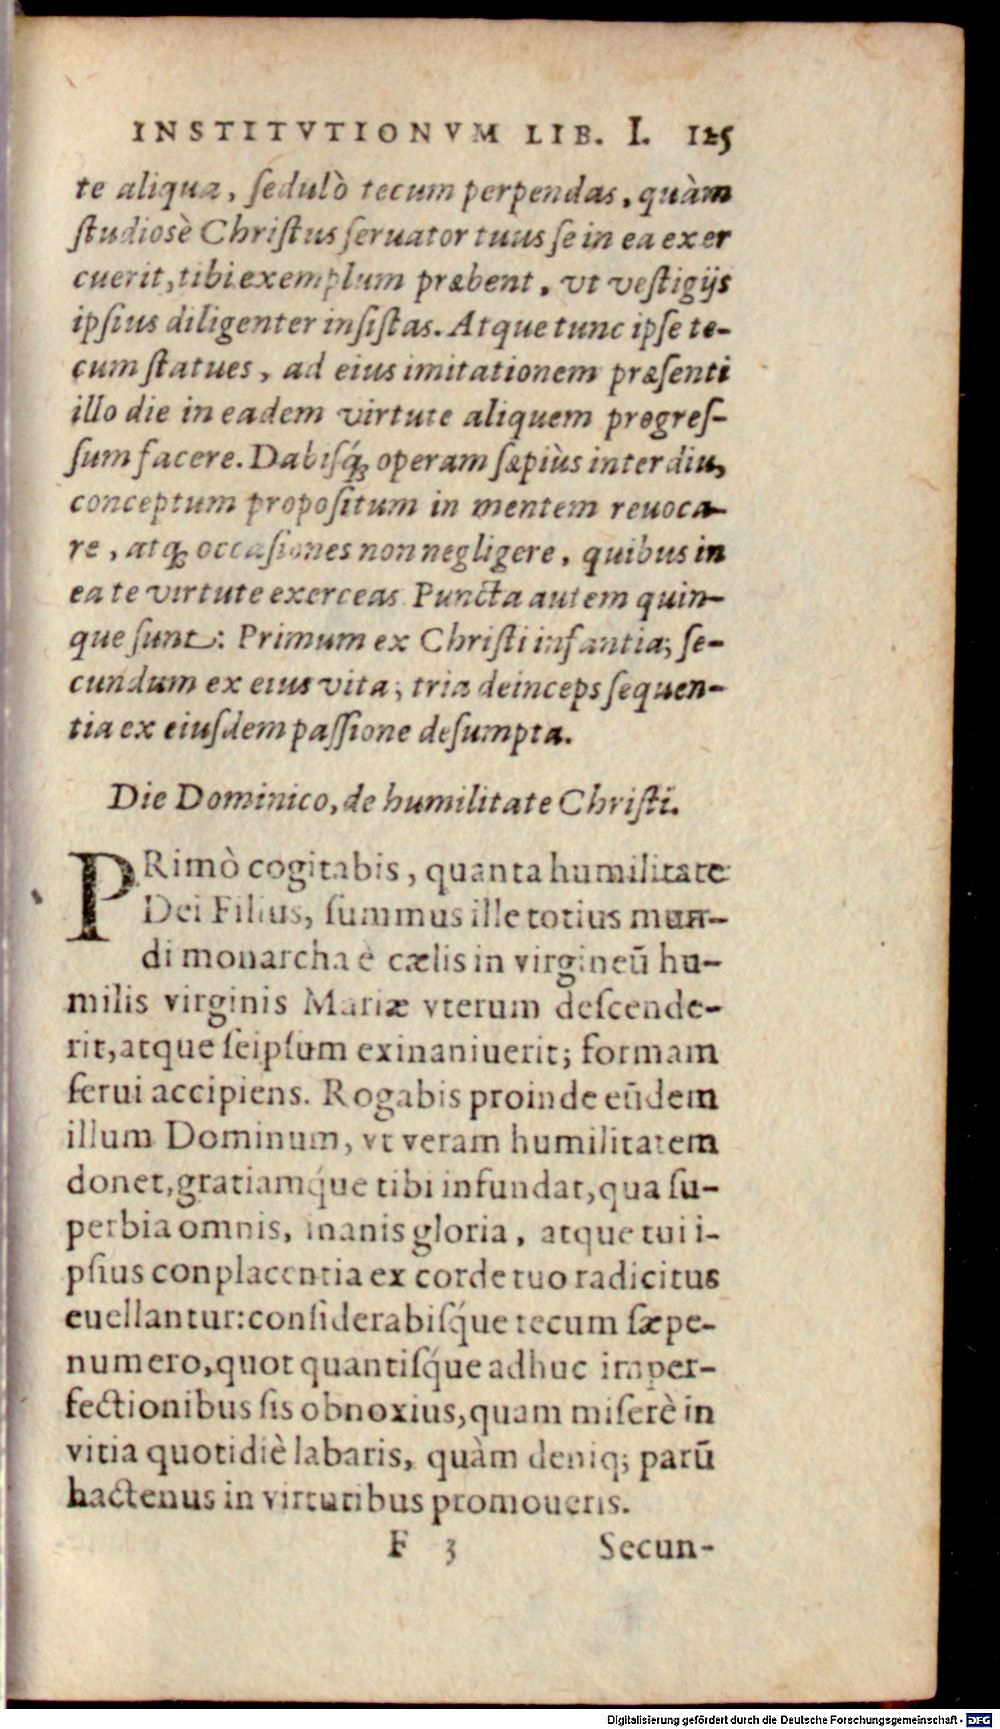 INSTITVTIONVM LIB. I. 125
te aliqua, ſedulò tecum perpendas, quàm
ſtudiosè Chriſtus ſeruator tuus ſe in ea exer
cuerit, tibi exemplum præbent, vt veſtigijs
ipſius diligenter inſiſtas. Atque tunc ipſe te-
cum ſtatues, ad eius imitationem præſenti
illo die in eadem virtute aliquem progreſ-
ſum facere. Dabiſq́ꝫ operam ſæpiùs interdiu,
conceptum propoſitum in mentem reuoca-
re, atqꝫ occaſiones non negligere, quibus in
ea te virtute exerceas. Puncta autem quin-
que ſunt: Primum ex Chriſti infantia; ſe-
cundum ex eius vita; tria deinceps ſequen-
tia ex eiuſdem paſſione deſumpta.
Die Dominico, de humilitate Chriſti.
PRimò cogitabis, quanta humilitate
Dei Filius, ſummus ille totius mun-
di monarcha è cælis in virgineū hu-
milis virginis Mariæ vterum deſcende-
rit, atque ſeipſum exinaniuerit; formam
ſerui accipiens. Rogabis proinde eūdem
illum Dominum, vt veram humilitatem
donet, gratiamq́ue tibi infundat, qua ſu-
perbia omnis, inanis gloria, atque tui i-
pſius conplacentia ex corde tuo radicitus
euellantur: conſiderabiſq́ue tecum ſæpe-
numero, quot quantiſq́ue adhuc imper-
fectionibus ſis obnoxius, quam miſerè in
vitia quotidiè labaris, quàm deniq; parū
hactenus in virtutibus promoueris.
F 3 Secun-
Digitalisierung gefördert durch die Deutsche Forschungsgemeinschaft - DFG